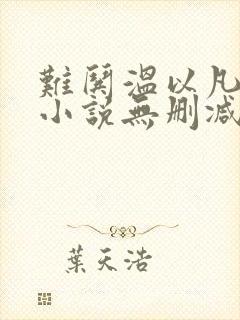 難鬨溫以凡
小說無刪減
葉天浩